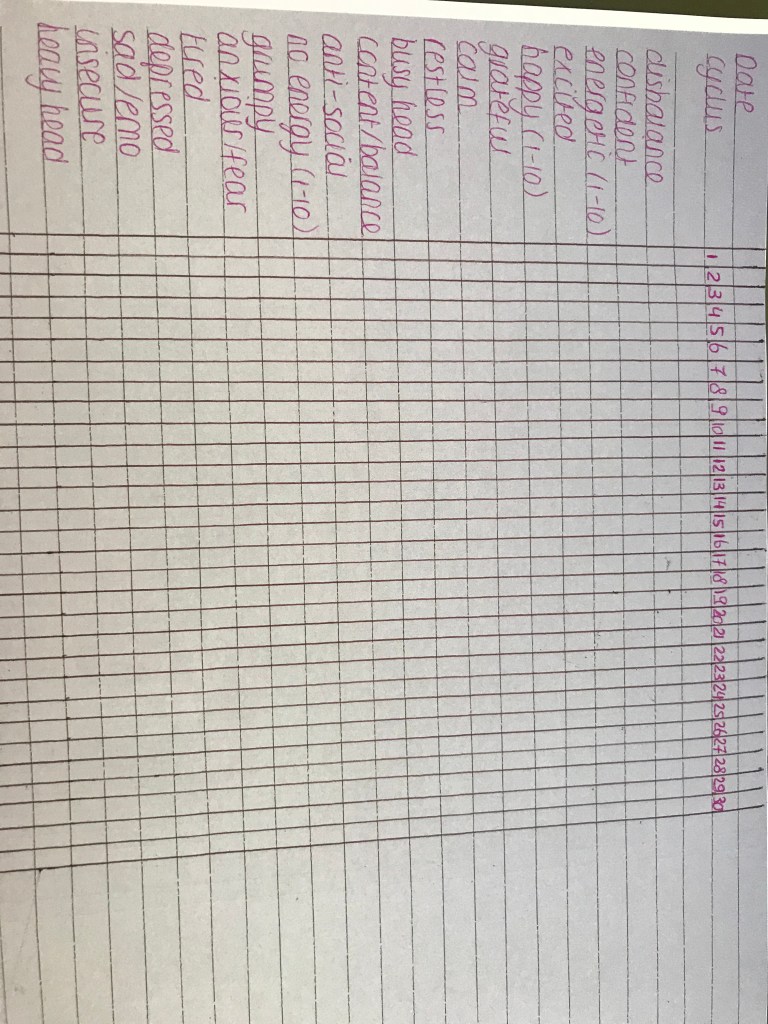 Date
cyclus 1 2 3 4 5 6 7 8 9 10 11 12 13 14 15 16 17 18 19 20 21 22 23 24 25 26 27 28 29 30
disbalance
confident
energetic (1-10)
excited
happy (1-10)
grateful
calm
restless
busy head
content/balance
anti-social
no energy (1-10)
grumpy
anxious/fear
tired
depressed
sad/emo
insecure
heavy head